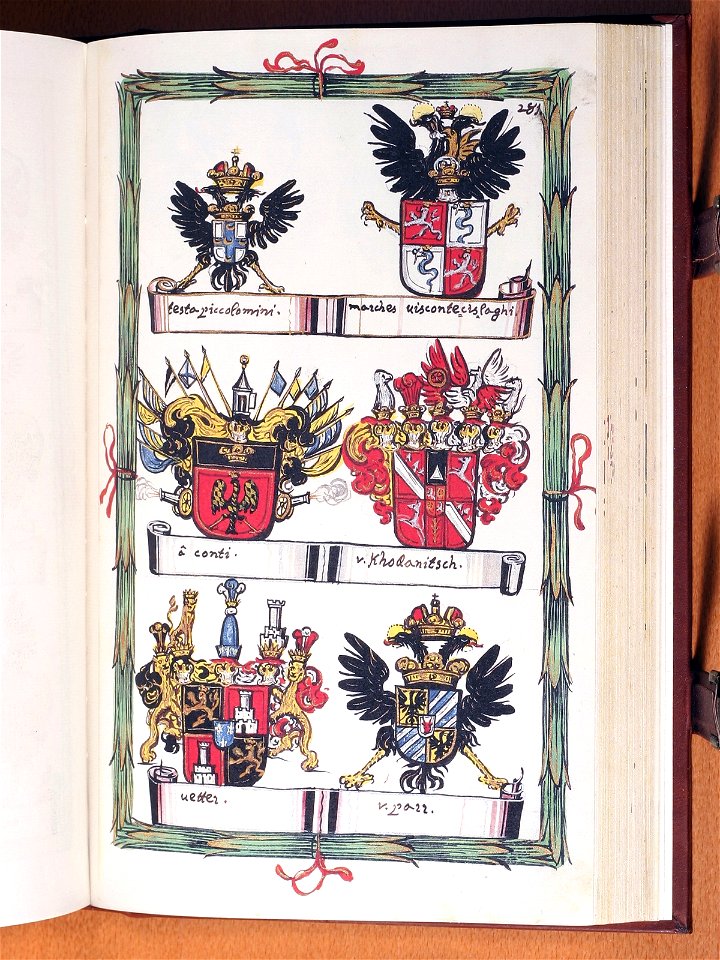 281
testa piccolomini.
marches visconte cislaghi
â conti.
v. Khodanitsch.
uetter.
v. parr.